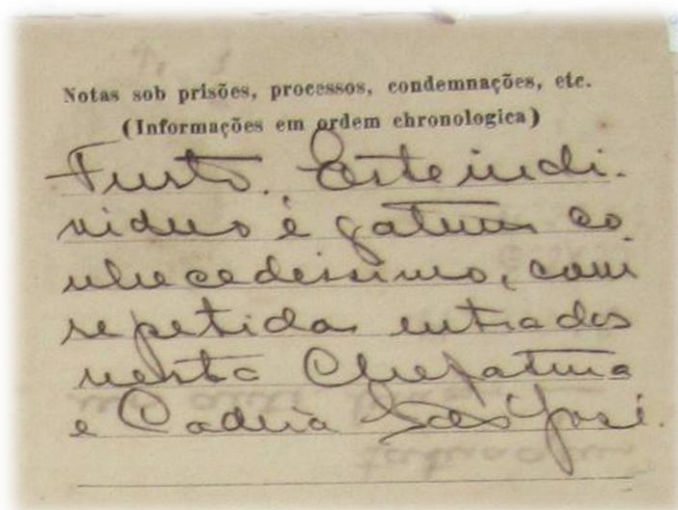 Notas sob prisões, processos, condemnações, etc.
(Informações em ordem chronologica)
Furto. Este indi-
viduo é gatuno co
nhecedissimo, com
repetidas entradas
nesta Chefatura
e Cadeia São José.